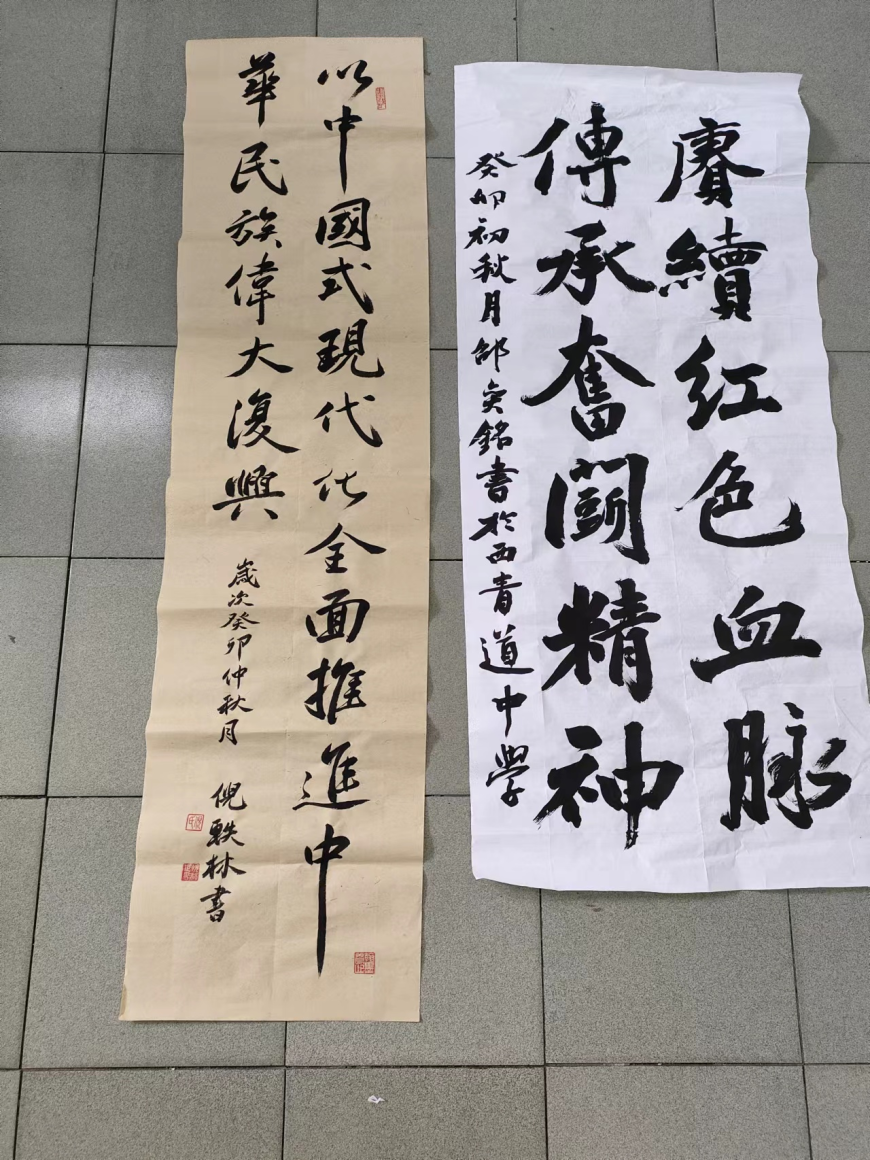 賡續红色血脉
傳承奮鬪精神
癸卯初秋月邵奕銘書於西青道中學
以中國式現代化全面推進中
華民族偉大復興
歲次癸卯仲秋月
倪軼林書